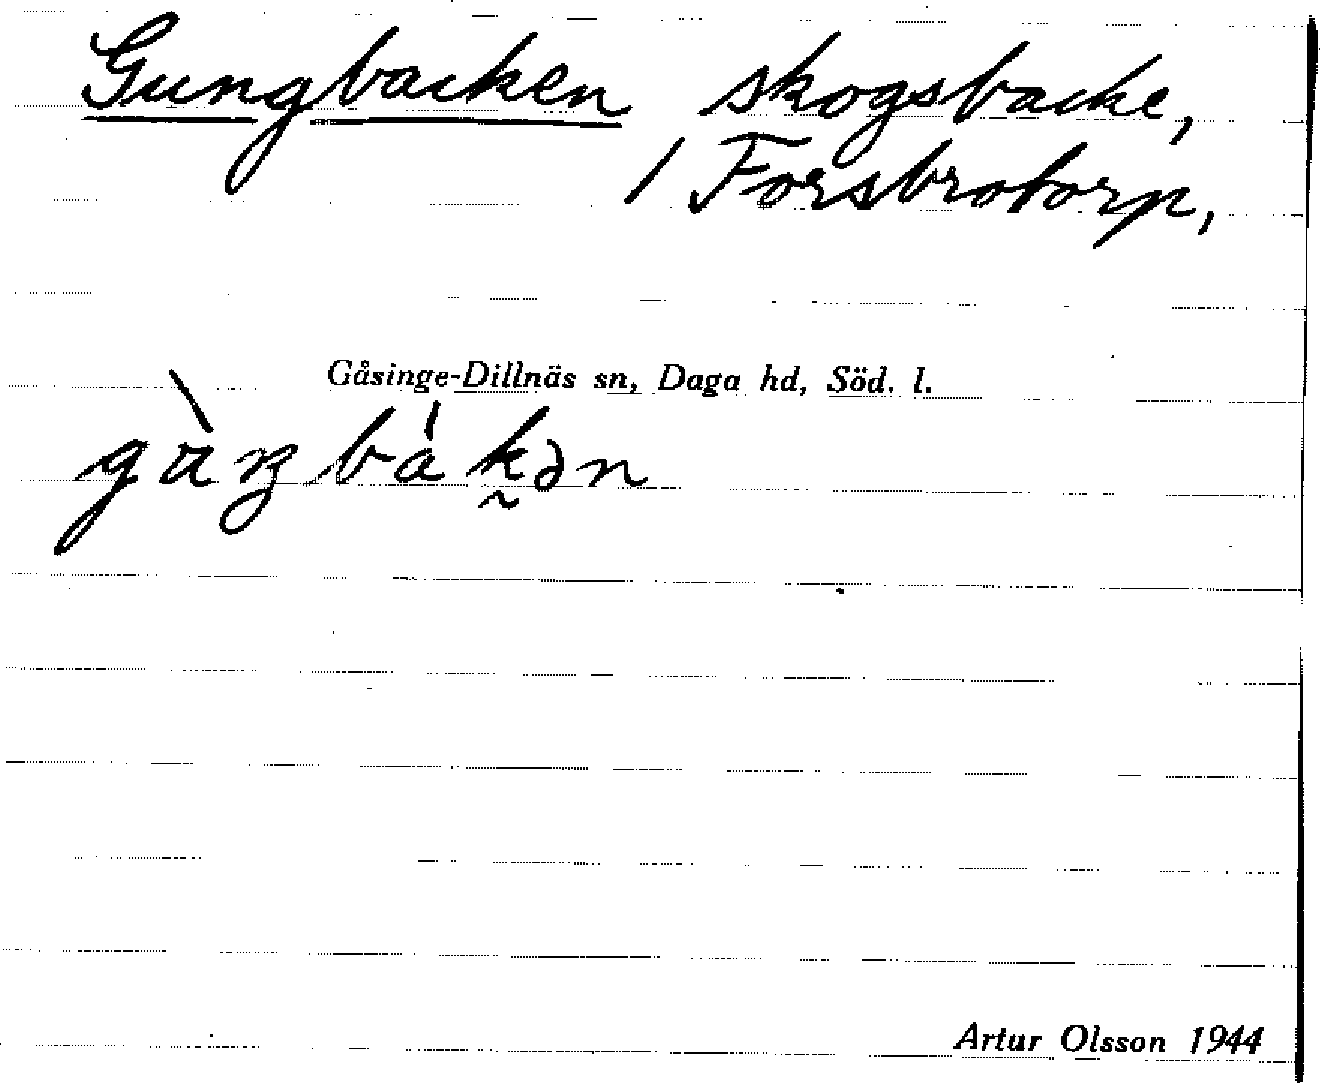 Gungbacken skogsbacke,
/ Forsbrotorp,
Gåsinge-Dillnäs sn, Daga hd, Söd. l.
Artur Olsson 1944